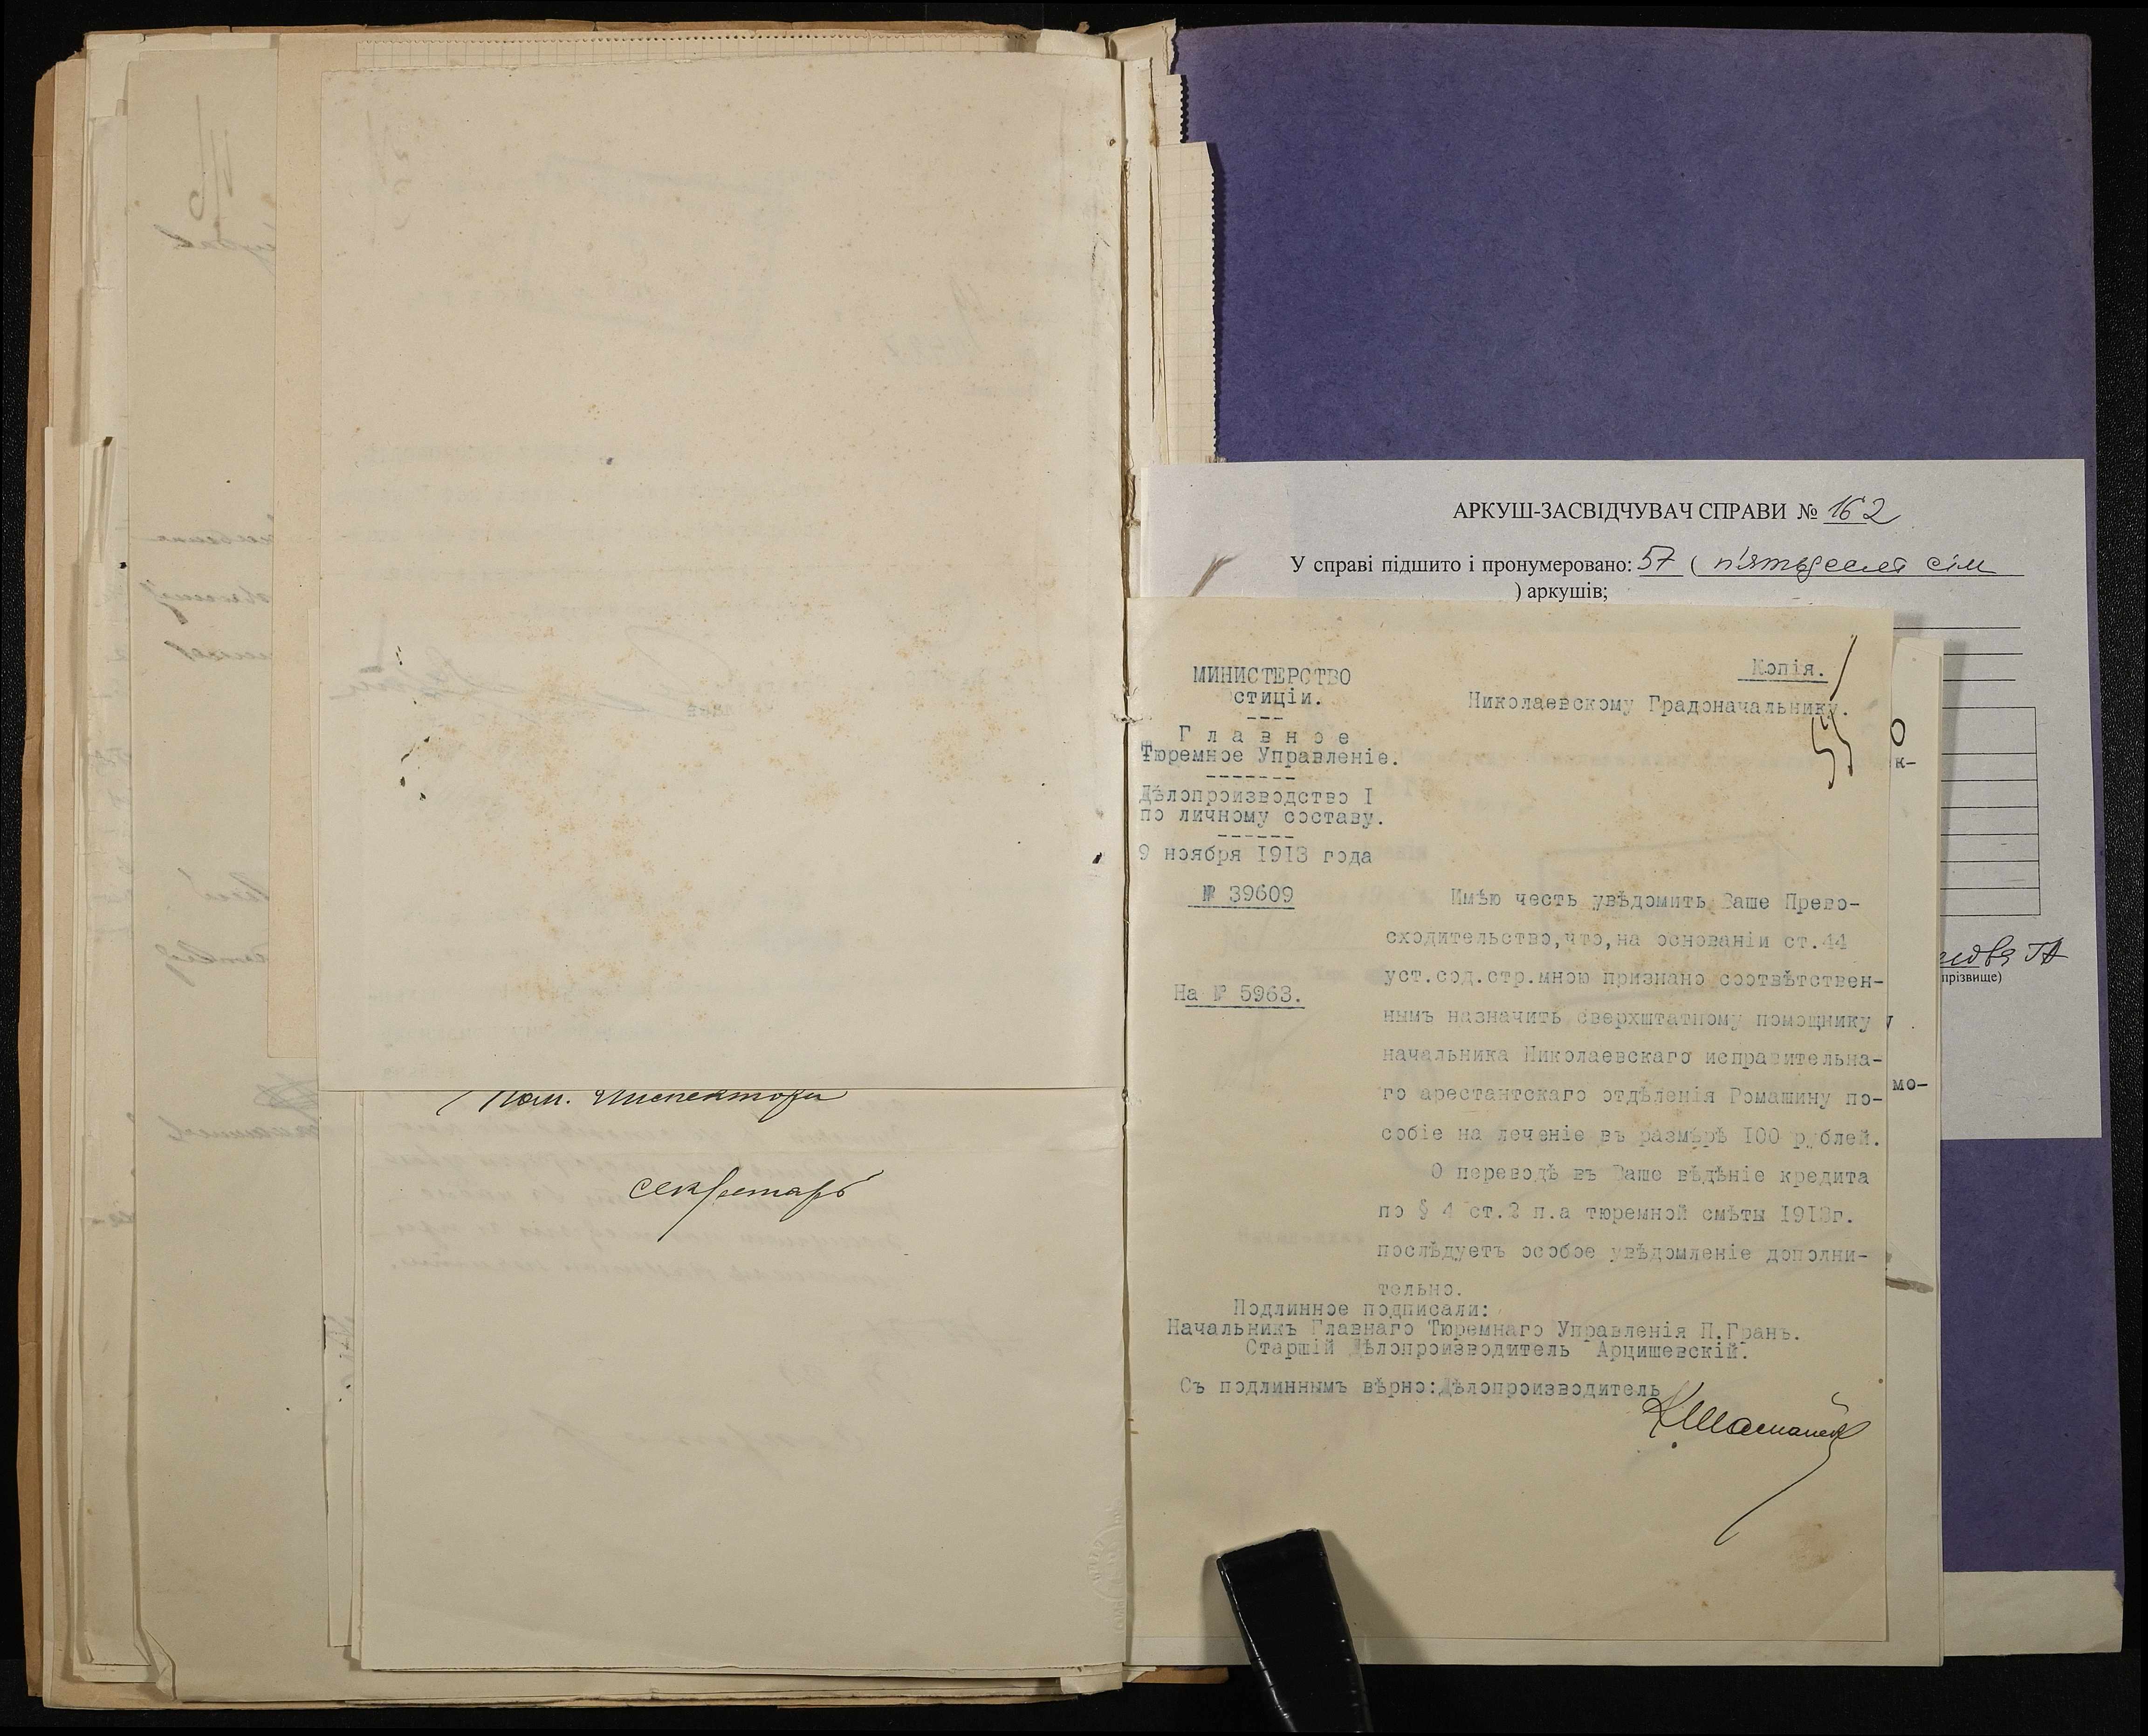 Пом. Инспектора
секретарь
АРКУШ-ЗАСВІДЧУВАЧ СПРАВИ № 162
У справі підшито і пронумеровано: 57 ( п'ятьдесят сім
) аркушів;
прізвище)
к-
мо-
Копія.
55
МИНИСТЕРСТВО
стиціи.
Николаевскому Градоначальнику.
Главное
Тюремное Управленіе.
Дѣлопроизводство I
по личному составу.
9 ноября 1913 года
№ 39609
На № 5963.
Имѣю честь увѣдомить Ваше Прево-
сходительство,что,на основаніи ст.44
уст.сод.стр.мною признано соотвѣтствен-
нымъ назначить сверхштатному помощнику
начальника Николаевскаго исправительна-
го арестантскаго отдѣленія Ромашину по-
собіе на леченіе въ размѣрѣ 100 рублей.
О переводѣ въ Ваше вѣдѣніе кредита
по § 4 ст.2 п.а тюремной смѣты 1913г.
послѣдуетъ особое увѣдомленіе дополни-
тельно.
Подлинное подписали:
Начальникъ Главнаго Тюремнаго Управленія П.Гранъ.
Старшій Дѣлопроизводитель Арцишевскій.
Съ подлиннымъ вѣрно:Дѣлопроизводитель